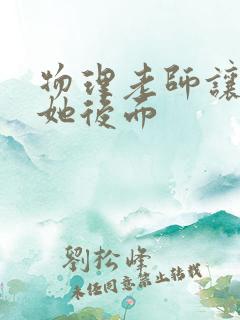 物理老師讓
她後而
劉松峰
未经同意禁止转载